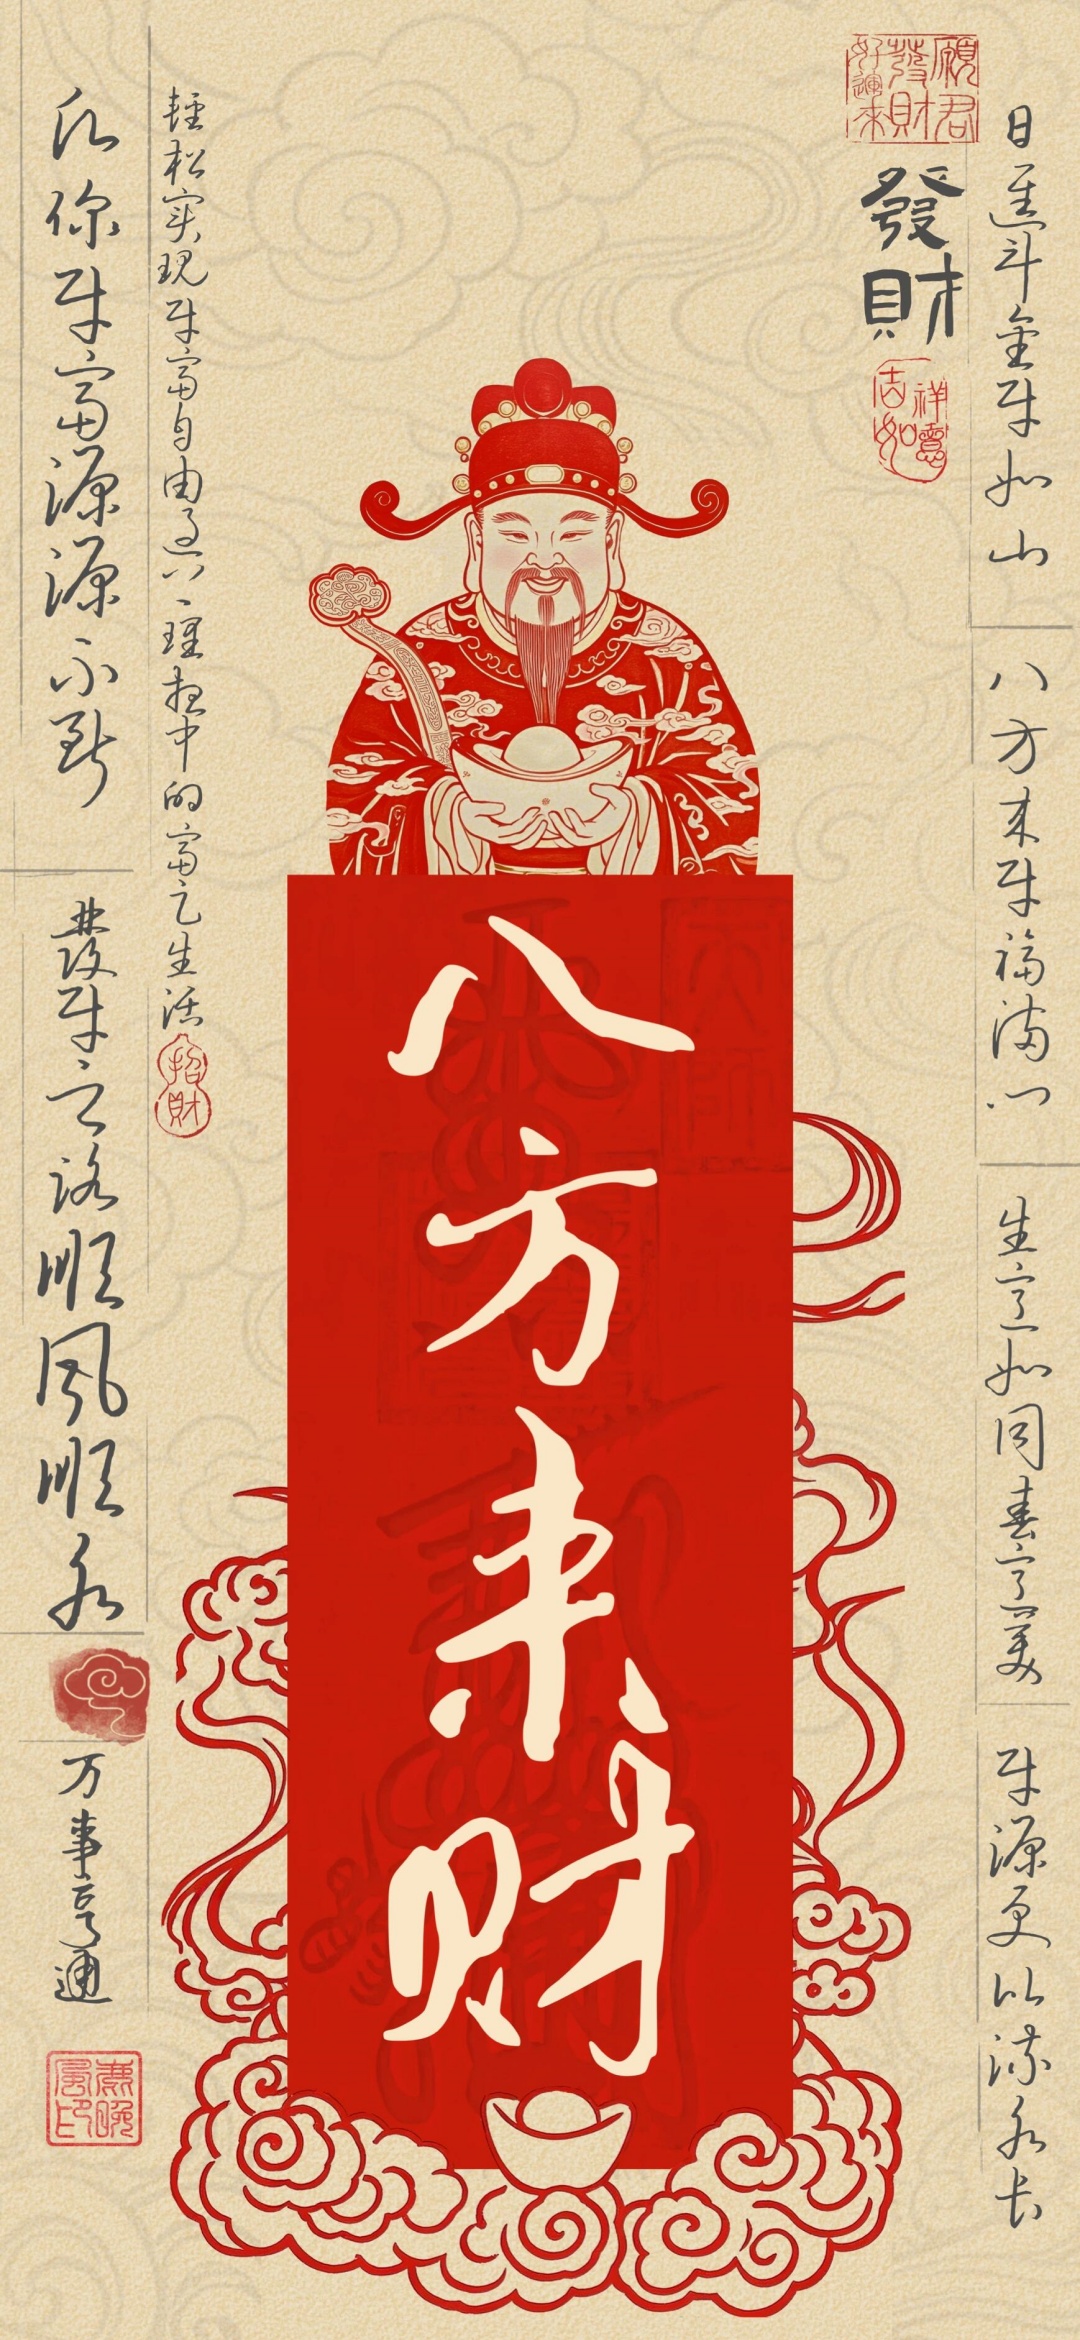 願君
發財
好運來
發財
吉祥
如意
日進斗金财如山
八方来财福满门
生意如同春意美
财源更似流水长
八方来财
轻松实现财富自由过以理想中的富足生活
招財
祝你财富源源不断
發财之路顺风顺水
万事亨通